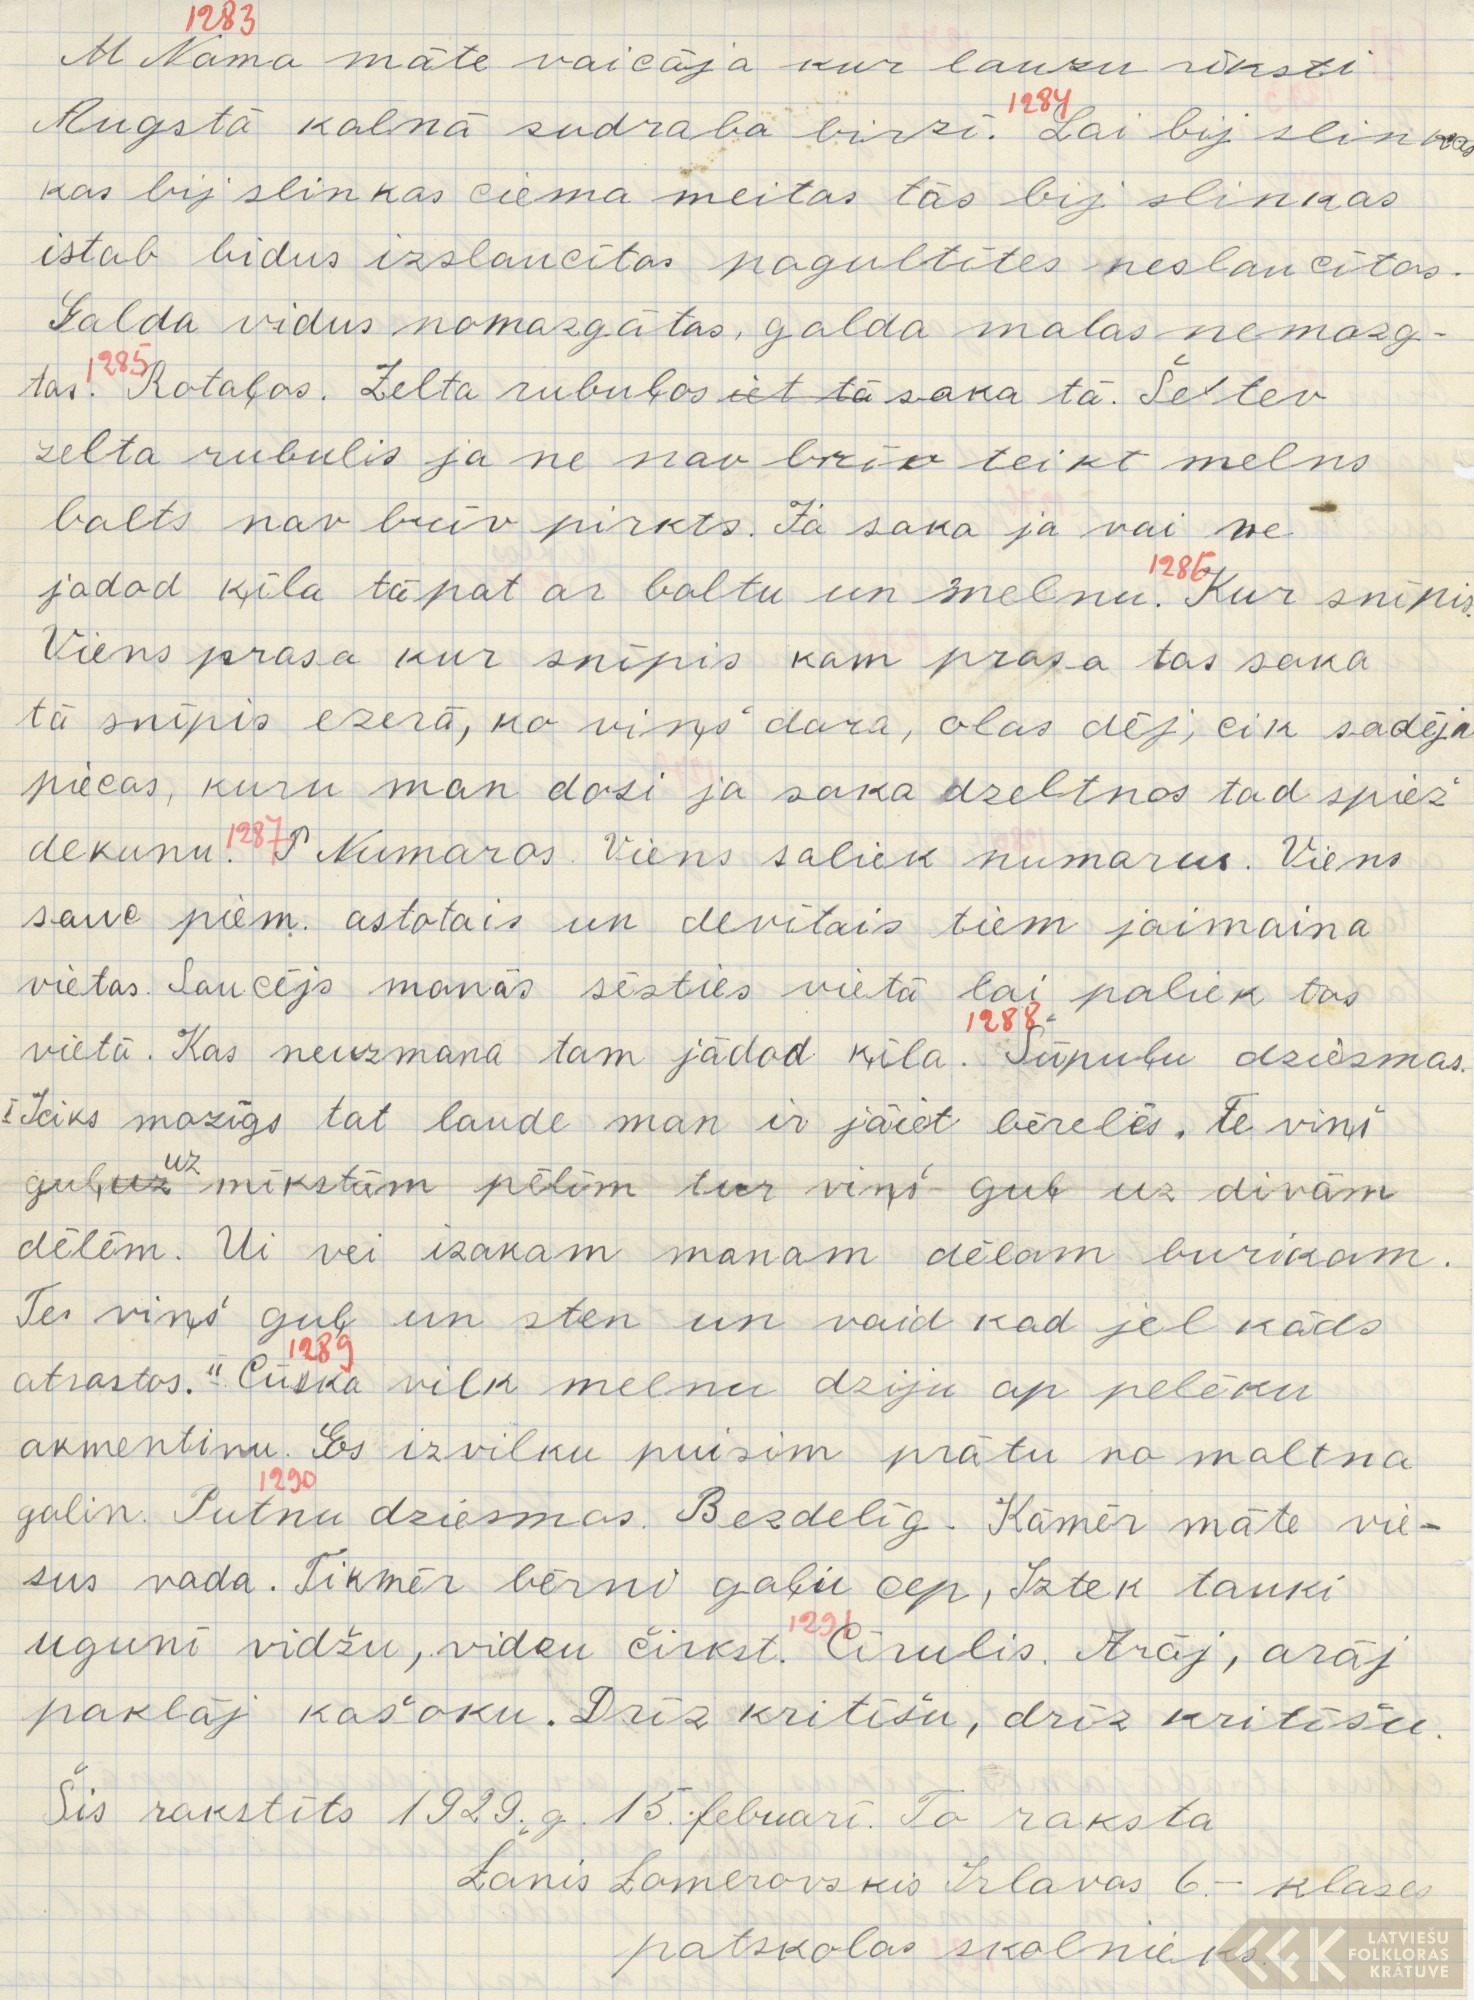 1283
M Nama māte vaicāja kur lauzu rīksti
Augstā kalnā sudraba birzī. 1284 Lai bij slinkas
kas bij slinkas ciema meitas tās bij slinkas
istab bidus izslaucītas pagultītes neslaucītas.
Galda vidus nomazgātas, galda malas nemazg-
tas. 1285 Rotaļas. Zelta rubuļos iet tā saka tā. Še tev
zelta rubulis ja ne nav brīv teikt melns
balts nav brīv pirkts. Jā saka ja vai ne
jadod ķīla tāpat ar baltu un melnu. 1286 Kur snīpis.
Viens prasa kur snīpis kam prasa tas saka
tā snīpis ezerā, ko viņš dara, olas dēj, cik sadēja
piecas, kuru man dosi ja saka dzeltnos tad spiež
dekunu. 1287 Numaros. Viens saliek numarus. Viens
sauc piem. astotais un devītais tiem jaimaina
vietas. Saucējs manās sēsties vietā lai paliek tas
vietā. Kas neuzmana tam jādod ķīla. 1288 Šūpuļu dziesmas.
I Teiks mazīgs tat laude man ir jāiet bērelēs. Te viņš
guļ uz uz mīkstām pēlēm tur viņš guļ uz divām
dēlēm. Ui vei izakam manam dēlam burikam.
Tes viņš guļ un sten un vaid kad jel kāds
atrastos. II 1289 Čūska vilk melnu dziju ap pelēku
akmentinu. Es izvilku puisim prātu no maltna
galin. 1290 Putnu dziesmas. Bezdelīg. Kāmēr māte vie-
sus vada. Tikmēr bērni gaļu cep, Iztek tauki
ugunī vidžu, vidzu čirkst. 1291 Cīrulis. Arāj, arāj
paklāj kašoku. Drīz kritīšu, drīz kritīšu.
Šis rakstīts 1929. g. 15. februarī. To raksta
Žanis Lamerovskis Irlavas 6.- klases
patskolas skolnieks.
LATVIEŠU
FOLKLORAS
KRĀTUVE